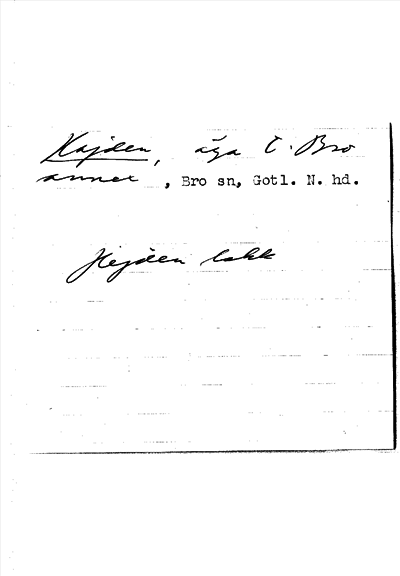 Kajden, äga t. Bro
annex, Bro sn, Gotl. N. hd.
Hejden lakk